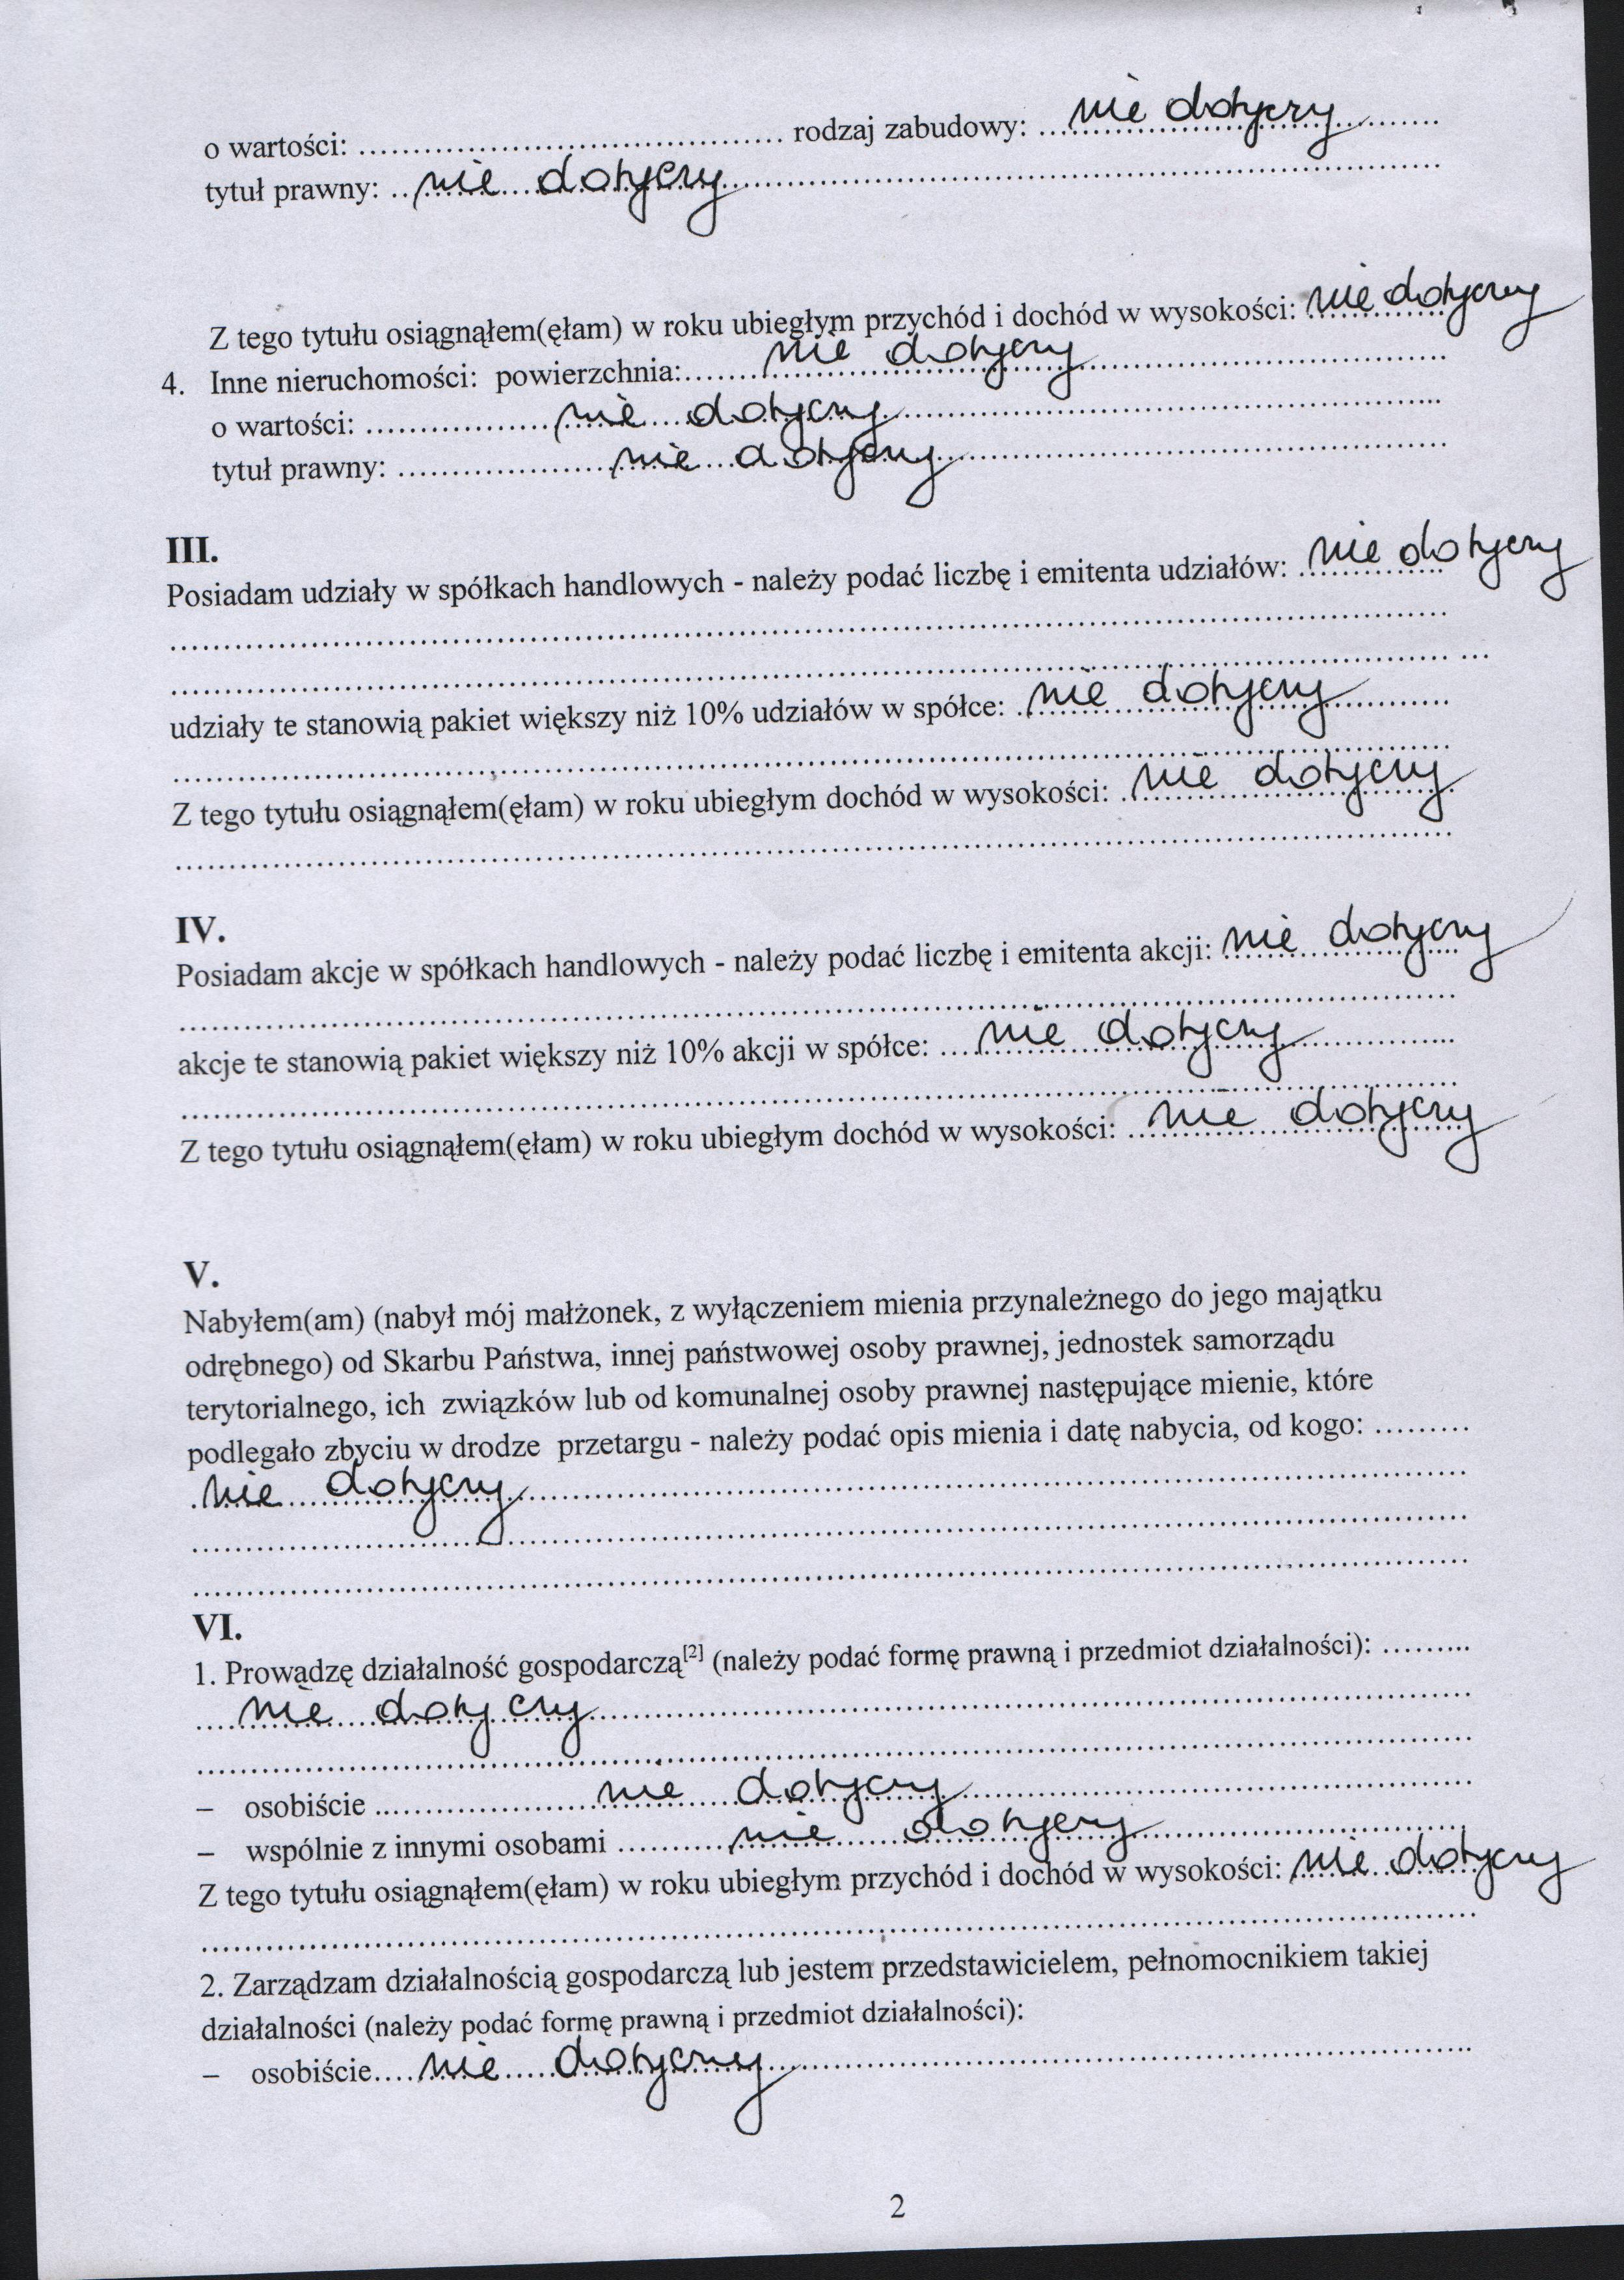 o wartości: ........................................ rodzaj zabudowy: nie dotyczy
tytuł prawny: nie dotyczy
Z tego tytułu osiągnąłem(ęłam) w roku ubiegłym przychód i dochód w wysokości: nie dotyczy
4. Inne nieruchomości: powierzchnia: nie dotyczy
o wartości: nie dotyczy
tytuł prawny: nie dotyczy
III.
Posiadam udziały w spółkach handlowych - należy podać liczbę i emitenta udziałów: nie dotyczy
udziały te stanowią pakiet większy niż 10% udziałów w spółce: nie dotyczy
Z tego tytułu osiągnąłem(ęłam) w roku ubiegłym dochód w wysokości: nie dotyczy
IV.
Posiadam akcje w spółkach handlowych - należy podać liczbę i emitenta akcji: nie dotyczy
akcje te stanowią pakiet większy niż 10% akcji w spółce: nie dotyczy
Z tego tytułu osiągnąłem(ęłam) w roku ubiegłym dochód w wysokości: nie dotyczy
V.
Nabyłem(am) (nabył mój małżonek, z wyłączeniem mienia przynależnego do jego majątku
odrębnego) od Skarbu Państwa, innej państwowej osoby prawnej, jednostek samorządu
terytorialnego, ich związków lub od komunalnej osoby prawnej następujące mienie, które
podlegało zbyciu w drodze przetargu - należy podać opis mienia i datę nabycia, od kogo: .........
nie dotyczy
VI.
1. Prowadzę działalność gospodarczą[2] (należy podać formę prawną i przedmiot działalności): .........
nie dotyczy
– osobiście nie dotyczy
– wspólnie z innymi osobami nie dotyczy
Z tego tytułu osiągnąłem(ęłam) w roku ubiegłym przychód i dochód w wysokości: nie dotyczy
2. Zarządzam działalnością gospodarczą lub jestem przedstawicielem, pełnomocnikiem takiej
działalności (należy podać formę prawną i przedmiot działalności):
– osobiście nie dotyczy
2